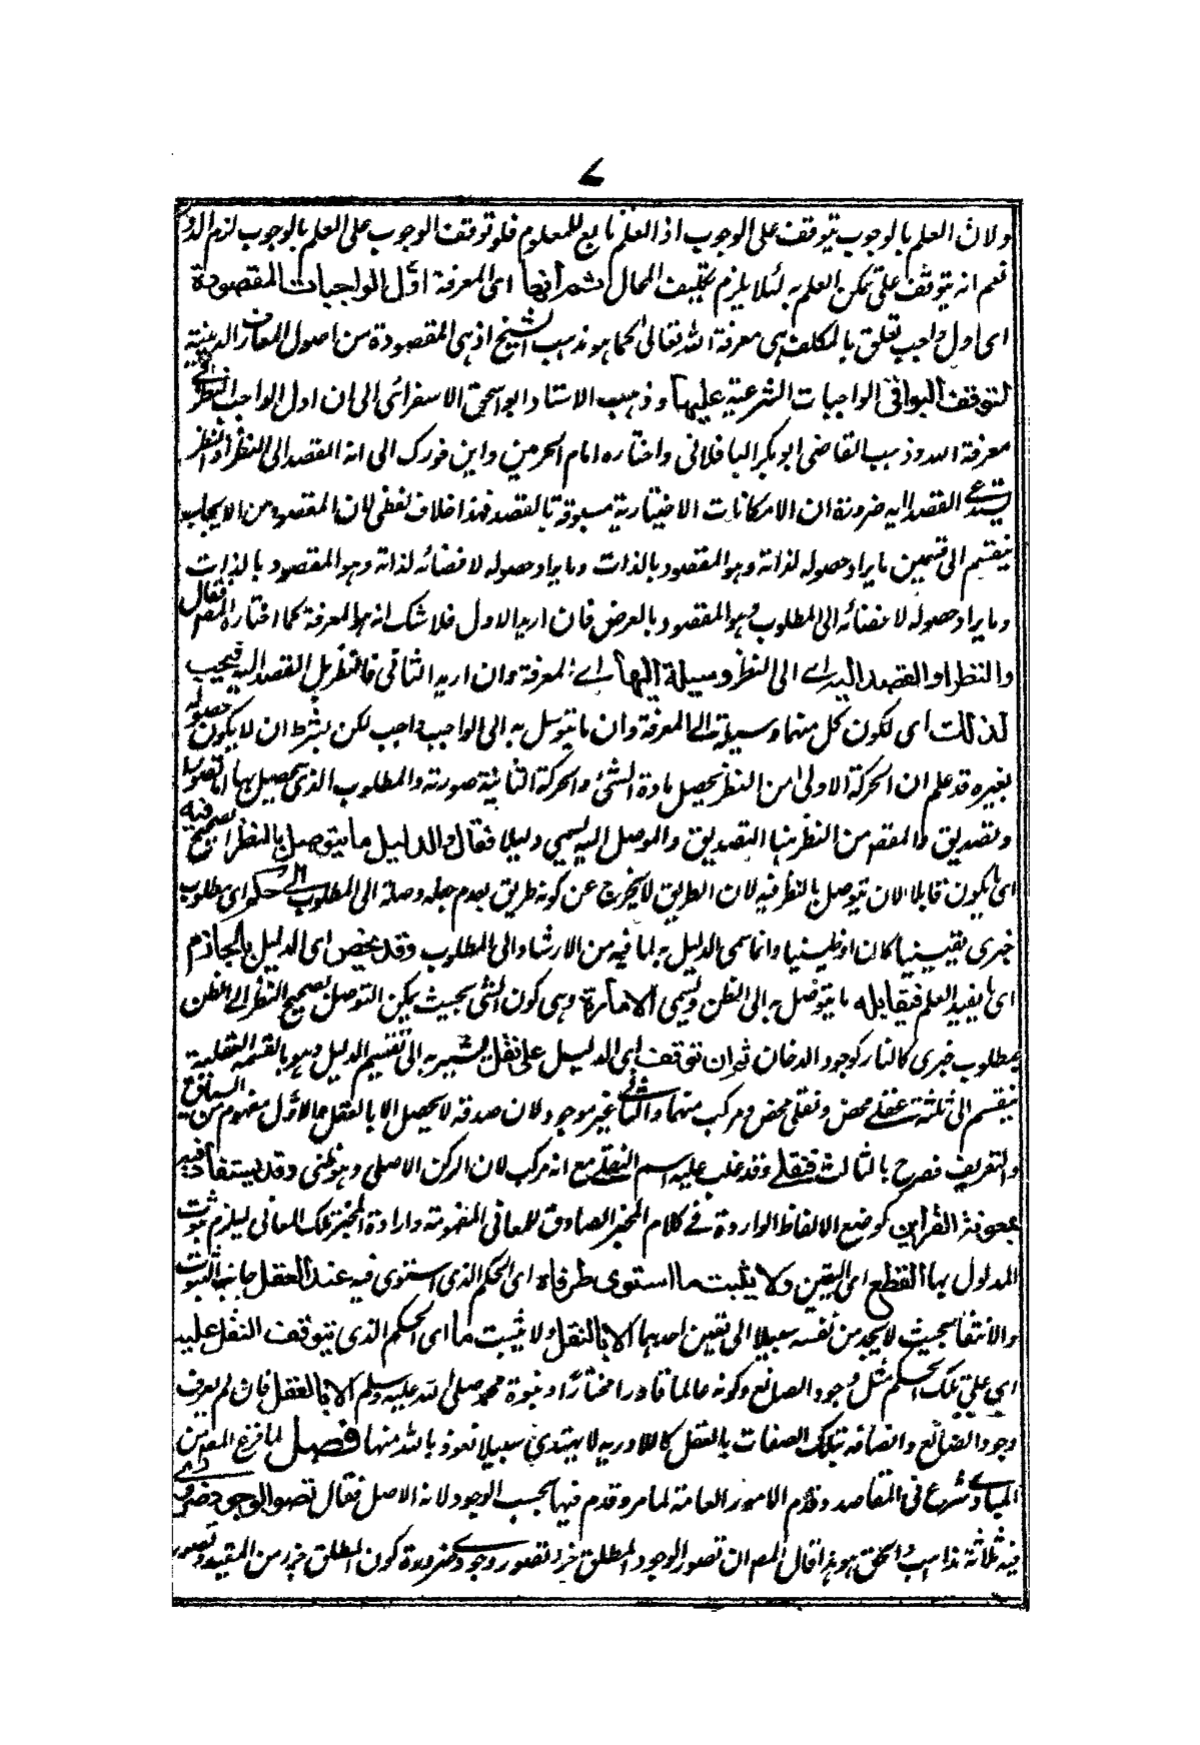 ٧
ولان العلم بالوجوب يتوقف على الوجوب اذ العلم تابع للمعلوم فلو توقف الوجوب على العلم بالوجوب لزم الدور
نعم انه يتوقف على تمكن العلم به لئلا يلزم تكليف المحال ثم انها اى المعرفة اول الواجبات المقصودة
اى اول واجب تعلق بالمكلف هى معرفة الله تعالى كما هو مذهب الشيخ اذ هى المقصودة من اصول المعارف الدينية
لتوقف البواقى الواجبات الشرعية عليها وذهب الاستاد ابو اسحق الاسفرائى الى ان اول الواجب النظر فى
معرفة الله وذهب القاضى ابو بكر الباقلانى واختاره امام الحرمين وابن فورك الى انه القصد الى النظر اذ النظر
يستدعى القصد اليه ضرورة ان الامكانات الاختيارية مسبوقة بالقصد فهذا خلاف لفظى لان المقصود من الايجاب
ينقسم الى قسمين ما يراد حصوله لذاته وهو المقصود بالذات وما يراد حصوله لا فضائه لذاته وهو المقصود بالذات
وما يراد حصوله لا فضائه الى المطلوب وهو المقصود بالعرض فان اريد الاول فلا شك انه هو المعرفة كما اختاره المصم فقال
والنظر او القصد اليه اے الى النظر وسيلة اليها اے المعرفة وان اريد الثانى فالنظر بل القصد اليه فيجب
لذلك اى لكون كل منهما وسيلة الى المعرفة وان ما يتوسل به الى الواجب واجب لكن بشرط ان لا يكون حصوله
بغيره قد علم ان الحركة الاولى من النظر يحصل مادة الشئ والحركة الثانية صورته والمطلوب الذى يحصل بها اما تصور
وتصديق والمقصم من النظر هنا التصديق والموصل اليه يسمى دليلا فقال والدليل ما يتوصل بالنظر الصحيح فيه
اى يكون قابلا لان يتوصل بالنظر فيه لان الطريق لا يخرج عن كونه طريق بعدم جعله وصلة الى المطلوب الى حكم اى مطلوب
خبرى يقينيا كان او ظنيا وانما سمى الدليل به لما فيه من الارشاد الى المطلوب وقد يخص اى الدليل بالجازم
اى ما يفيد العلم فيقابله ما يتوصل به الى الظن ويسمى الامارة وهى كون الشئ بحيث يمكن التوصل بصحيح النظر الى الظن
بمطلوب خبرى كالنار كوجود الدخان ثم ان توقف اى الدليل على نقل يشير به الى تقسيم الدليل وهو بالقسمة العقلية
ينقسم الى ثلثة عقلى محض ونقلى محض ومركب منهما والثانى غير موجود لان صدقه لا يحصل الا بالعقل والاول مفهوم من السابق
والتعريف فصرح بالثالث فنقلى وقد غلب عليه اسم النقلى مع انه مركب لان الركن الاصلى وهو ظنى وقد يستفاد فيه
بمعونة القراين كوضع الالفاظ الواردة فى كلام المخبر الصادق للمعانى المفهومة وارادة المخبر تلك المعانى ليلزم ثبوت
المدلول بها القطع اى اليقين ولا يثبت ما استوى طرفاه اى الحكم الذى استوى فيه عند العقل جانب الثبوت
والانتفا بحيث لا يجد من نفسه سبيلا الى تعين احدهما الا بالنقل ولا يثبت ما اى الحكم الذى يتوقف النقل عليه
اى على تلك الحكم مثل وجود الصانع وكونه عالما قادرا مختارا ونبوة محمد صلى الله عليه وسلم الا بالعقل فان لم يعرف
وجود الصانع واتصافه بتلك الصفات بالعقل كاللاادريه لا يهتدى سبيلا نعوذ بالله منها فصل لما فرغ المصم من
المبادى شرع فى المقاصد وقدم الامور العامة لما مر وقدم فيها بحسب الوجود لانه الاصل فقال تصور الوجود ضرورى
فيه ثلاثة مذاهب الحق هو هذا قال المصم ان تصور الوجود المطلق جزء تصور وجودى ضرورة كون المطلق جزء من المقيد وتصور